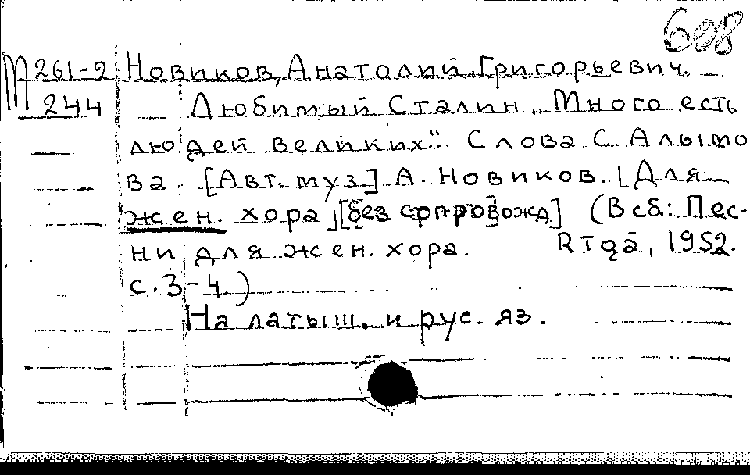 608
М 261-2 Новиков, Анатолий Григорьевич. —
244 Любимый Сталин. „Много есть
людей великих". Слова С. Алымо
ва. [Авт. муз.] А. Новиков. [Для
жен. хора] [без сопровожд] (В сб: Пес-
ни для жен. хора. Rīgā, 1952.
с. 3-4.)
На латыш. и рус. яз.